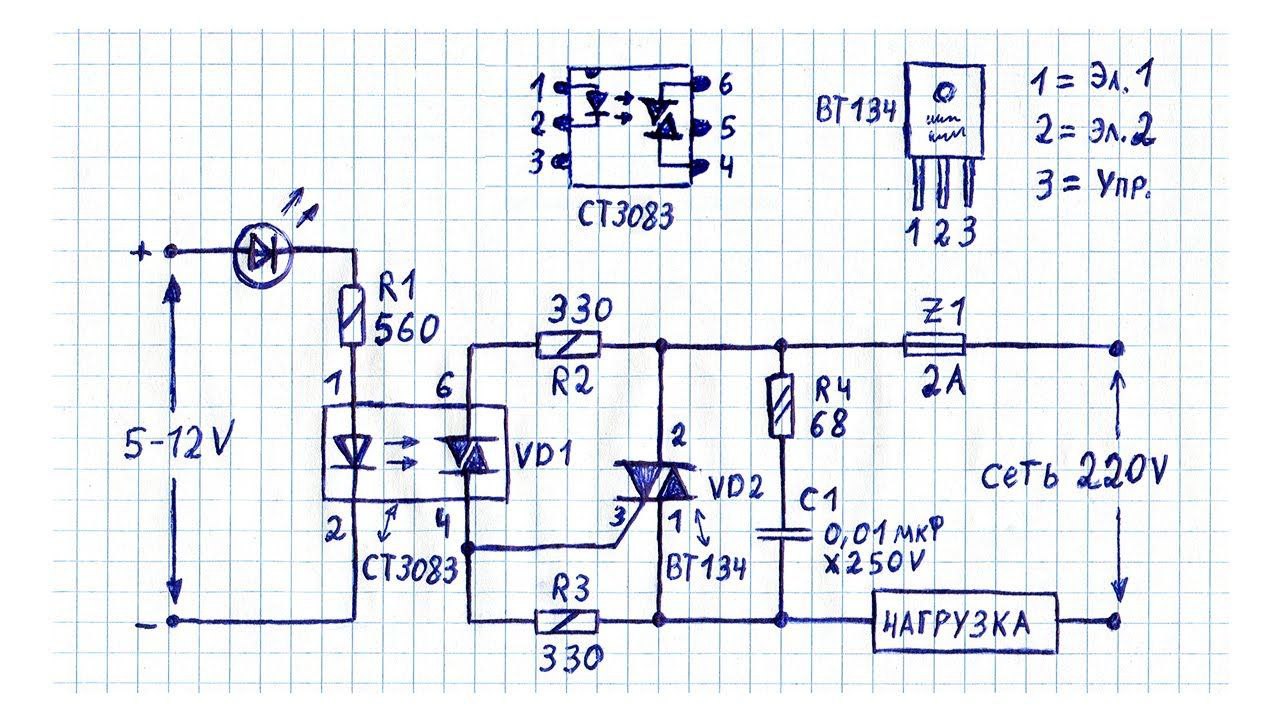 1
2
3
6
5
4
CT3083
BT134
1 2 3
1 = Эл.1
2 = Эл.2
3 = Упр.
+
R1
560
5-12V
-
1
6
2
4
VD1
CT3083
330
R2
R3
330
2
3
1
VD2
BT134
R4
68
C1
0,01 мкФ
x250V
Z1
2A
сеть 220V
НАГРУЗКА